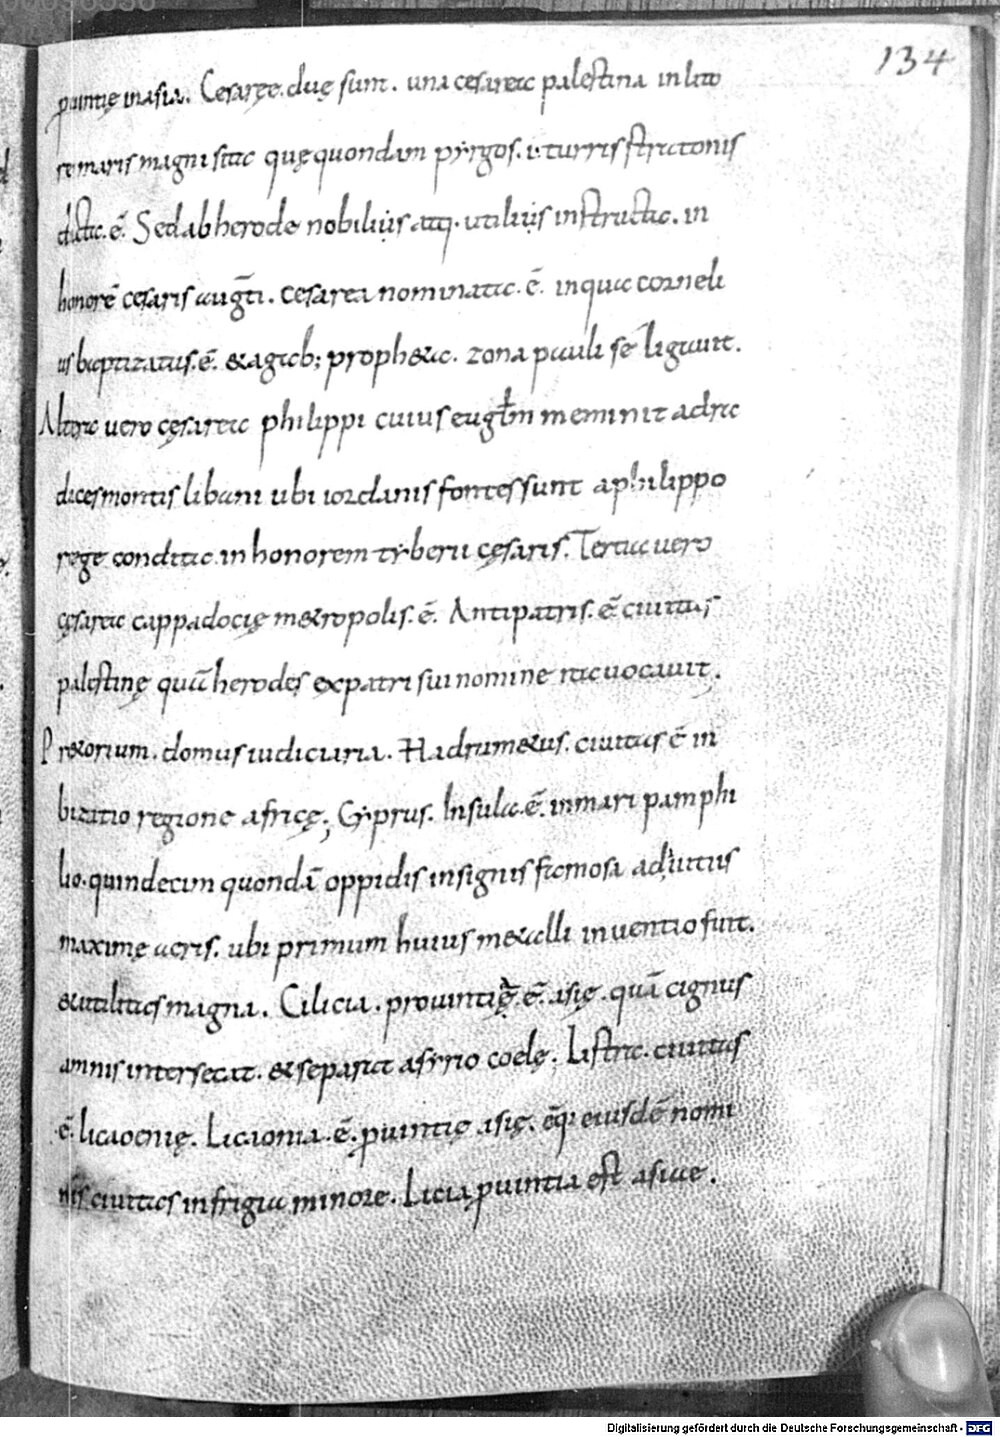 134
ꝓuintię inasia. Cesaręę. duę sunt. una cesarea palestina in lito
re maris magni sita quę quondam pyrgos. i. turris stratonis
dicta. ē. Sed ab herode nobiliụs atq. utiliụs instructa. in
honorē cesaris augṫi. cesarea nominata. ē. in qua corneli
us baptizatus. ē. & agab; proph&a. zona pauli se ligauit.
Altera uero cęsarea philippi cuius eugłm meminit ad ra
dices montis libani ubi iordanis fontes sunt a philippo
rege condita in honorem tyberii cęsaris. Tertia uero
cęsarea cappadocię m&ropolis. ē. Antipatris. ē ciuitas
palestinę quā herodes ex patri sui nomine uocauit.
Pr&orium. domus iudiciaria. Hadrum&us. ciuitas ē in
bizatio regione africę; Cyprus. Insula. ē. in mari pamphi
lio. quindecim quondā oppidis insignis famosa ad
maxime aeris. ubi primum huius m&alli inuentio fuit.
& utilitas magna. Cilicia. prouintię. ē. asię. quā cignus
amnis intersecat. & separat asyrio coelę. Listra. ciuitas
ē. licaonię. Licaonia. ē. ꝓuintię asię. ēq; eiusdē nomi
nis ciuitas in frigia minore. Licia ꝓuintia est asiae.
Digitalisierung gefördert durch die Deutsche Forschungsgemeinschaft - DFG